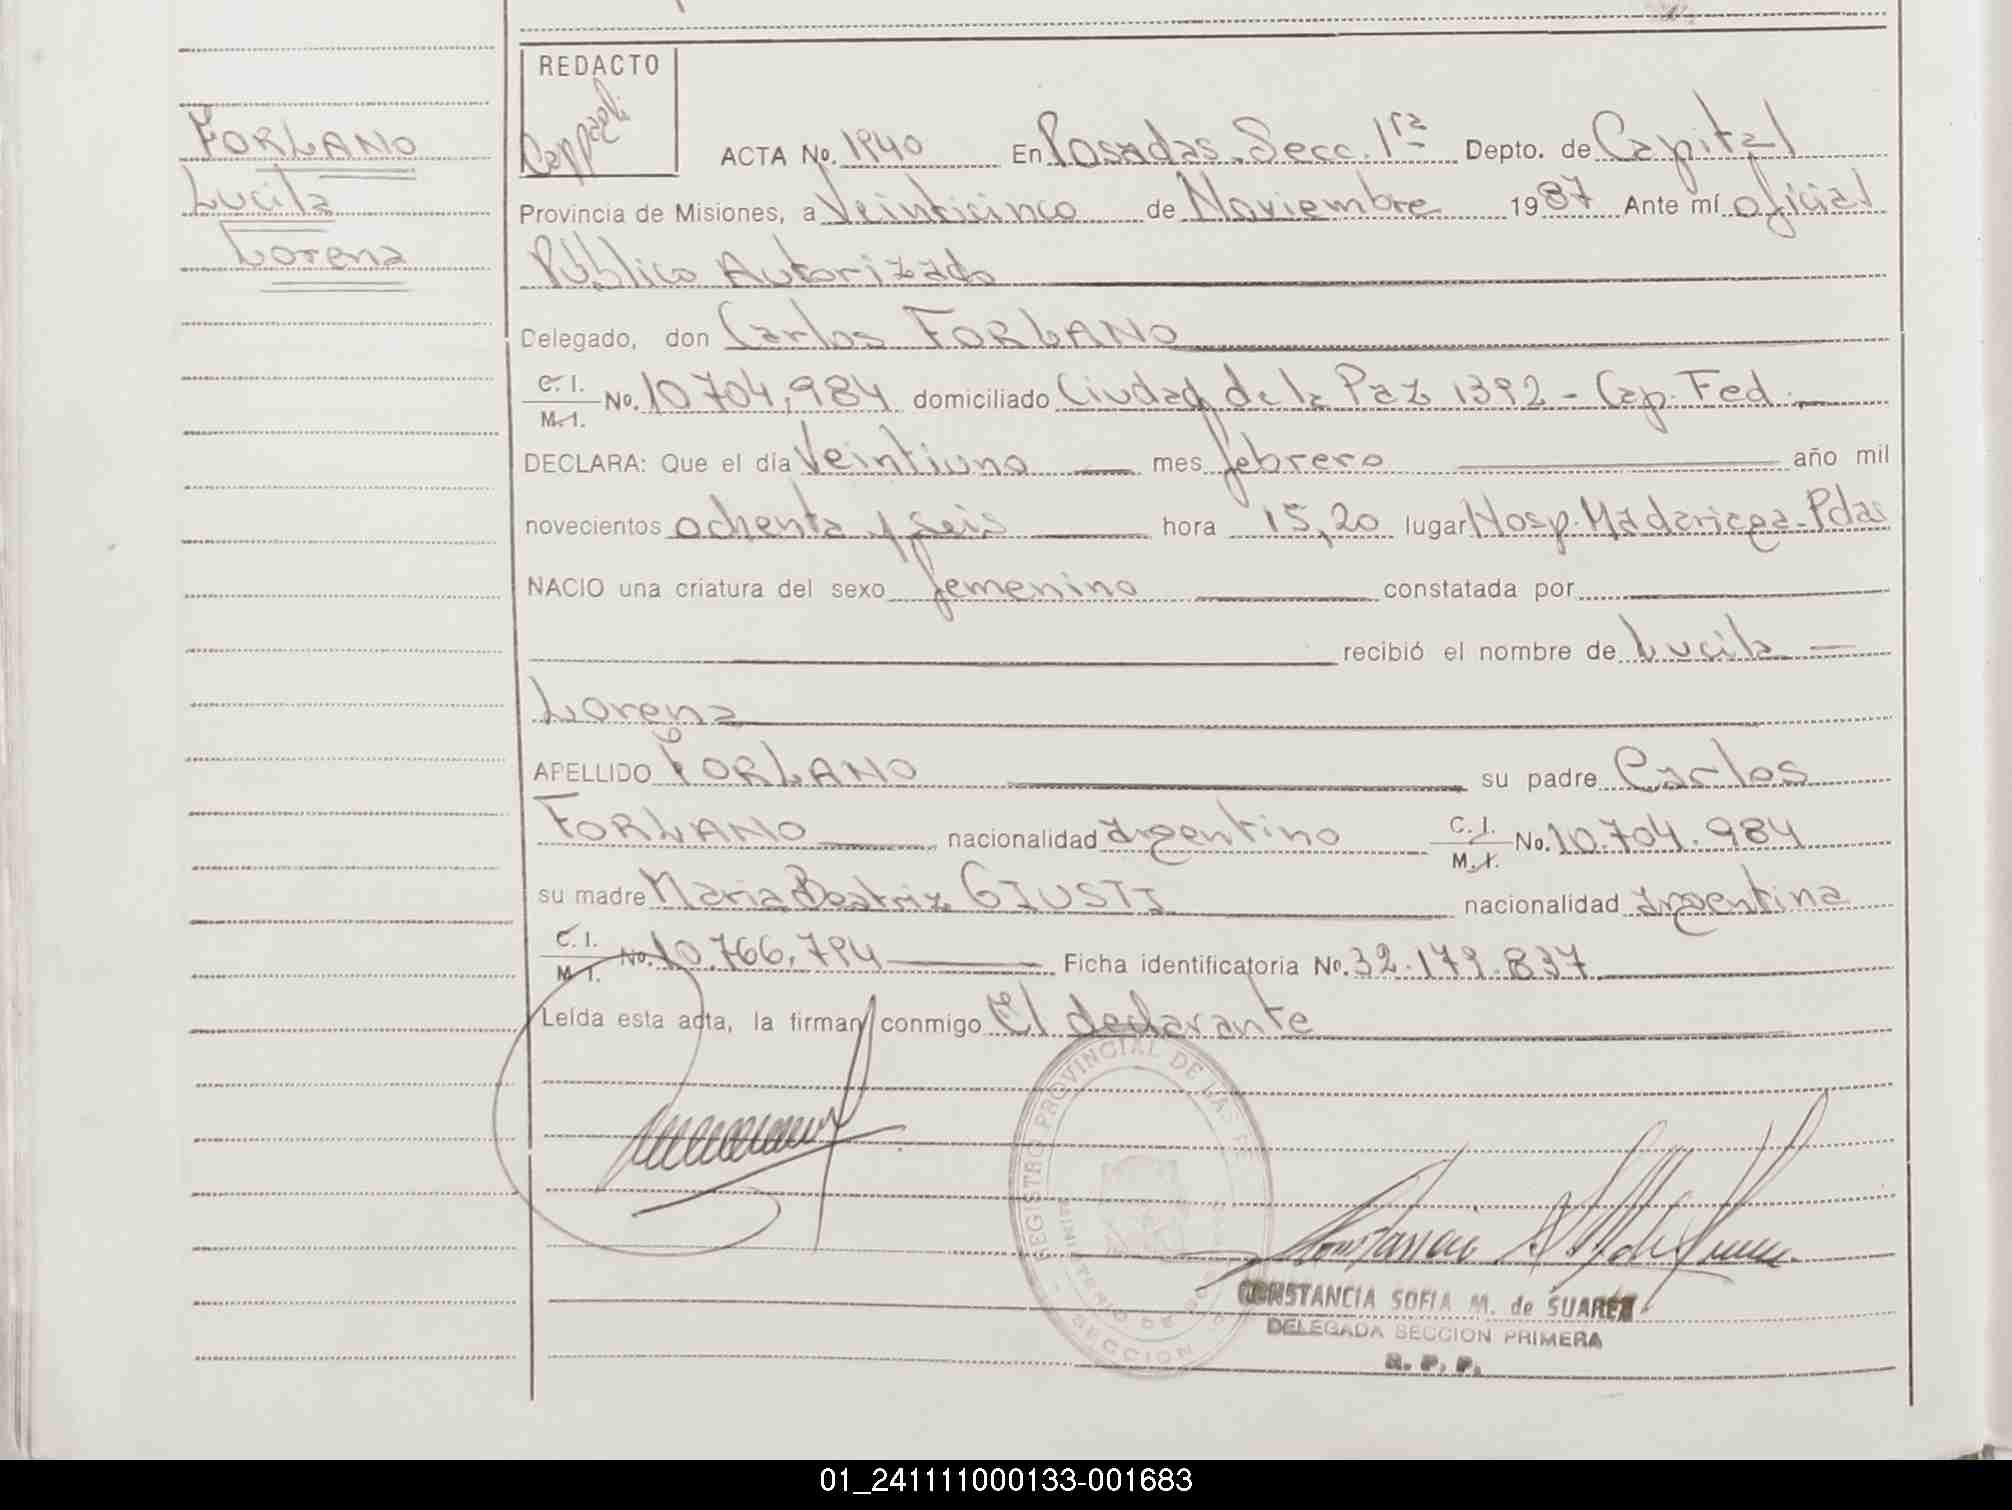 FORLANO
Lucila
Lorena
REDACTO
Cappagli
ACTA No. 1940 En Posadas Secc. 1ra Depto. de Capital
Provincia de Misiones, a Veinticinco de Noviembre 1987 Ante mí oficial
Público Autorizado
Delegado, don Carlos FORLANO
C. I. M. I. No. 10704,984 domiciliado Ciudad de la Paz 1392 - Cap. Fed.
DECLARA: Que el día Veintiuno mes febrero año mil
novecientos ochenta y seis hora 15,20 lugar Hosp. Madariaga - Pdas
NACIO una criatura del sexo femenino constatada por
recibió el nombre de Lucila
Lorena
APELLIDO FORLANO su padre Carlos
FORLANO nacionalidad argentino C. I. M. I. No. 10.704.984
su madre Maria Beatriz GIUSTI nacionalidad argentina
C. I. M. I. No. 10.766,794 Ficha identificatoria No. 32.179.837
Leída esta acta, la firman conmigo El declarante
REGISTRO PROVINCIAL DE LAS
MINISTERIO DE
SECCION
CONSTANCIA SOFIA M. de SUAREZ
DELEGADA SECCION PRIMERA
R. P. P.
01_241111000133-001683